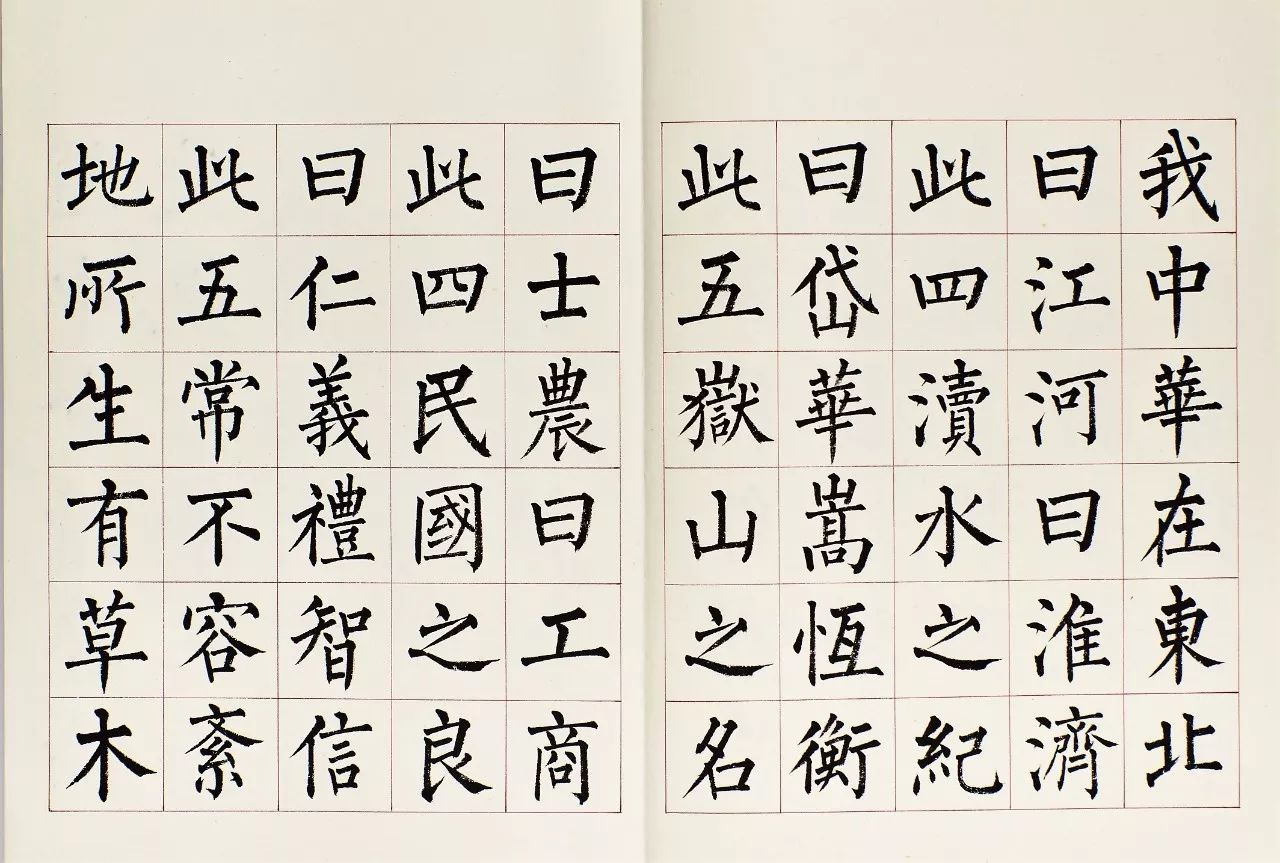 我中華在東北
曰江河曰淮濟
此四瀆水之紀
曰岱華嵩恆衡
此五嶽山之名
曰士農曰工商
此四民國之良
曰仁義禮智信
此五常不容紊
地所生有草木